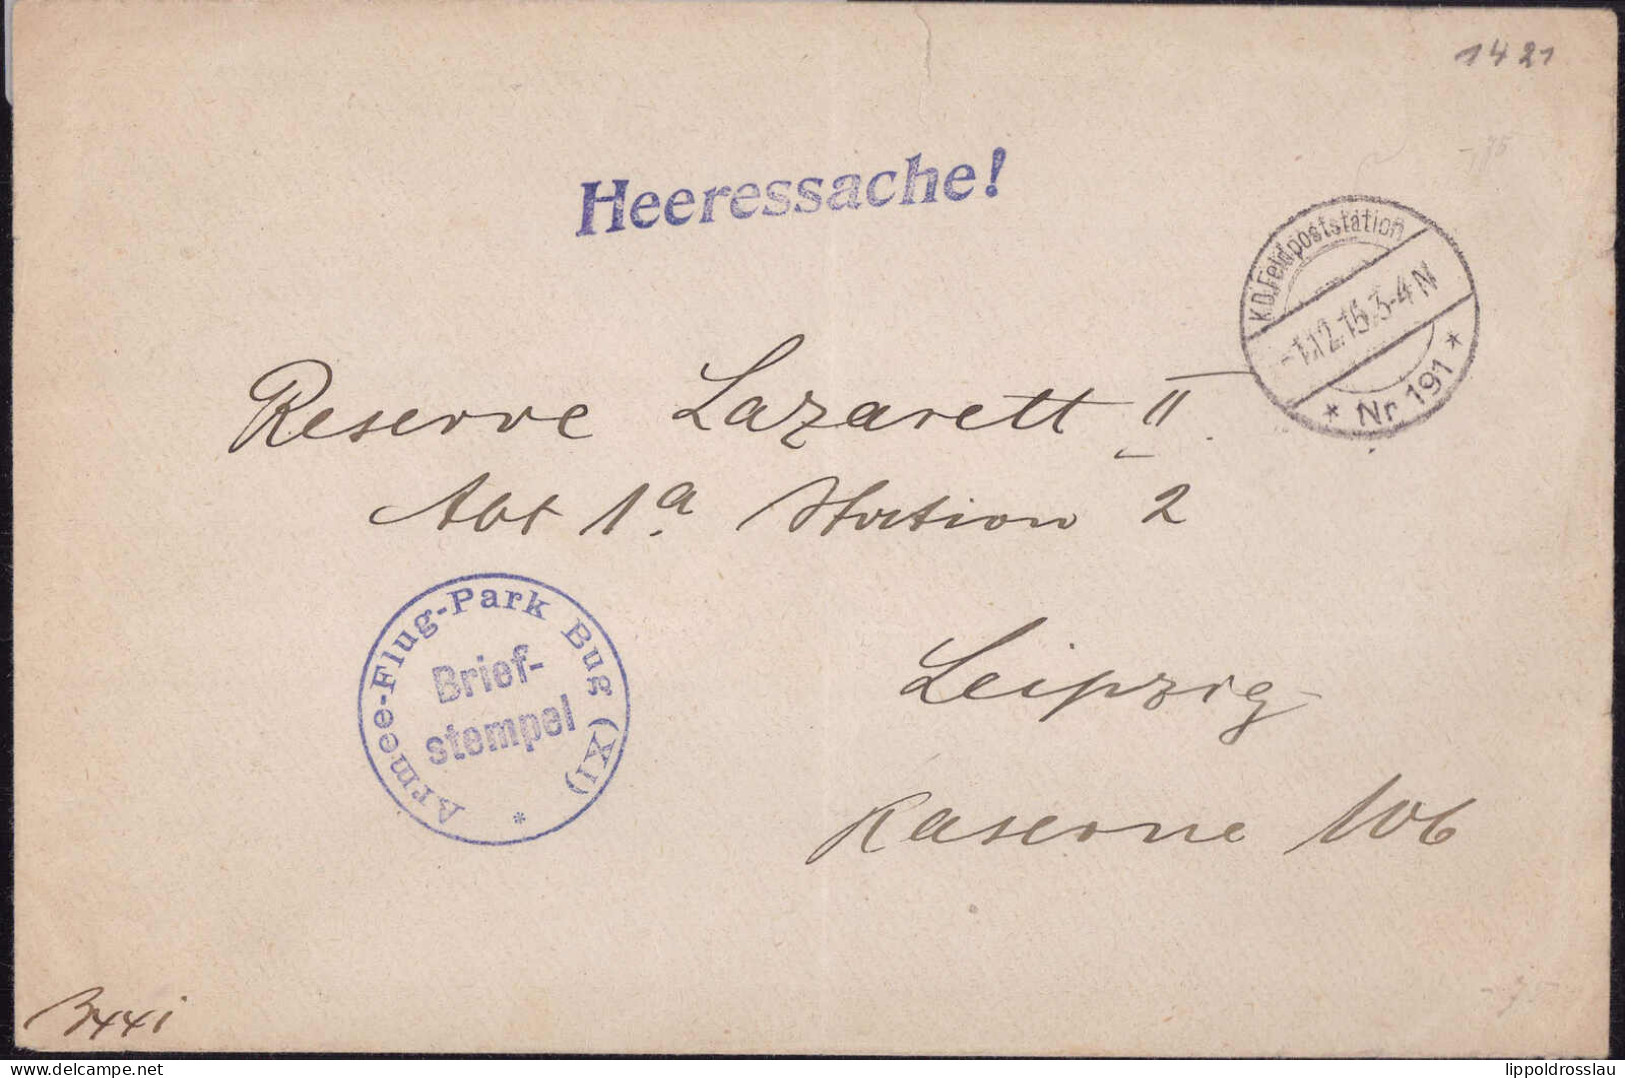 1421
Heeressache!
K.D. Feldpoststation
-1.12.15.3-4N
* Nr. 191 *
Reserve Lazarett II.
Abt 1a. Station 2
Armee-Flug-Park Bug (XI)
Brief-
stempel
*
Leipzig
Kaserne 106
www.delcampe.net
lippoldrosslau